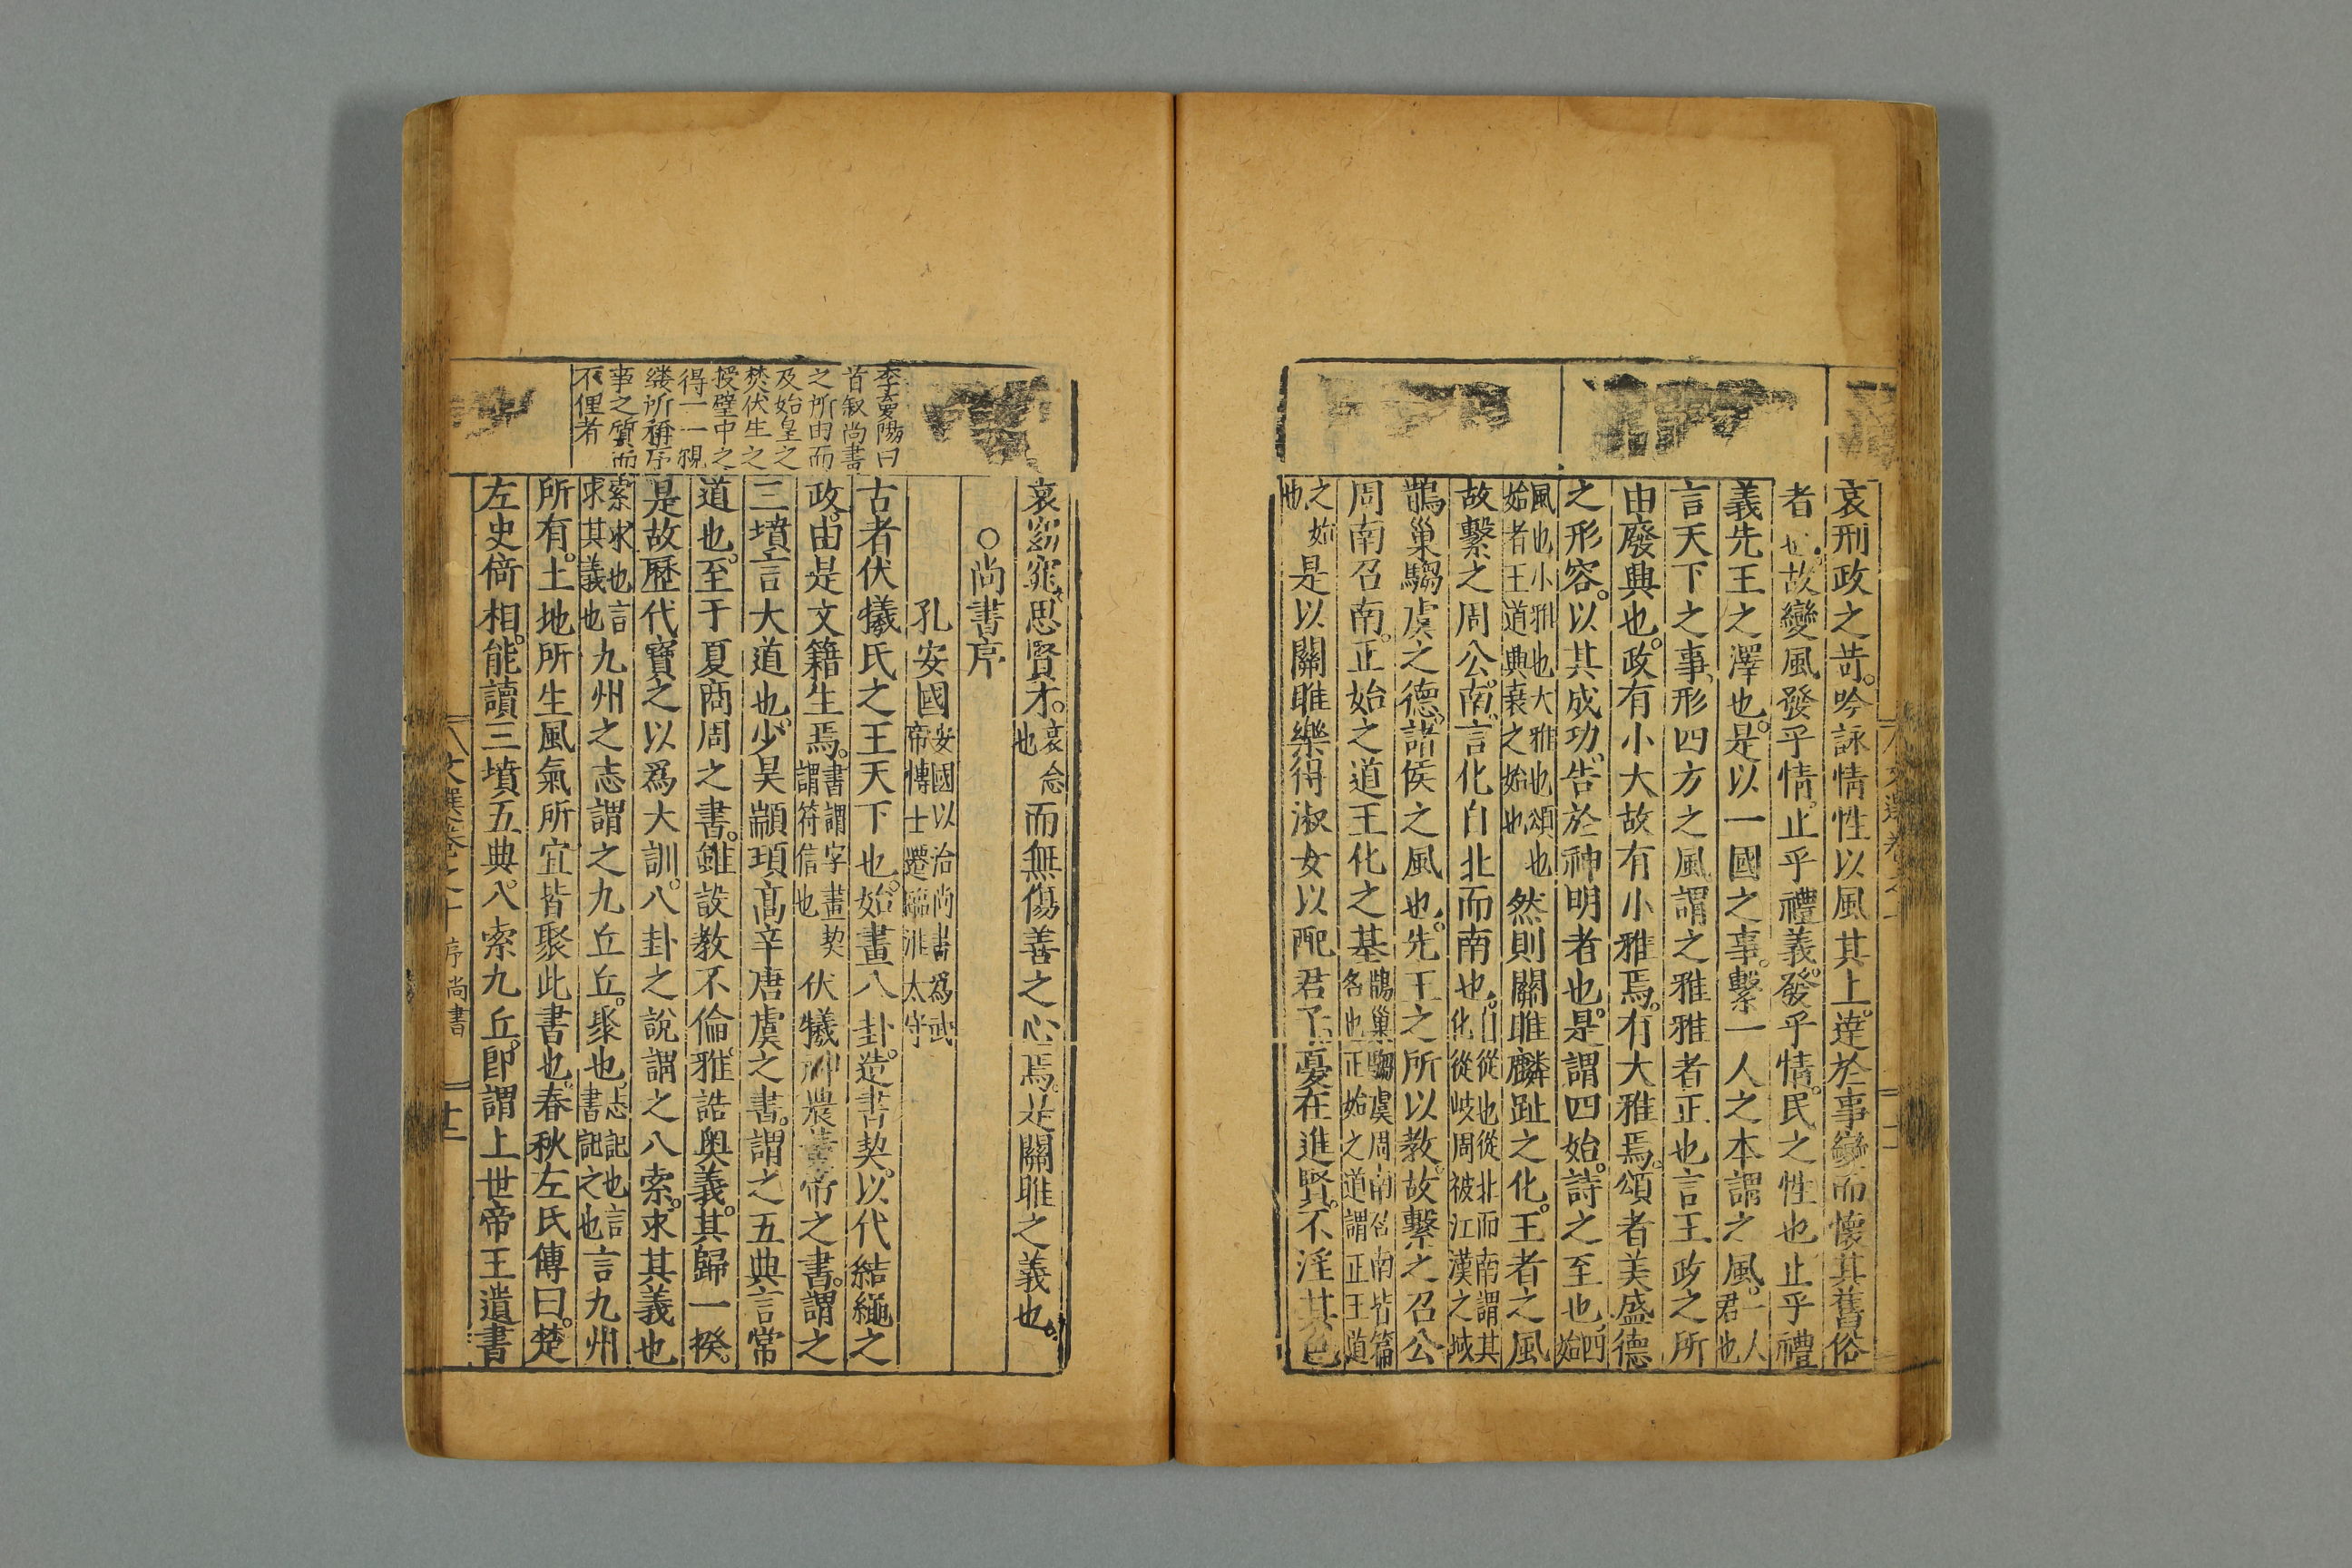 哀刑政之苛。吟詠情性以風其上。達於事變而懷其舊俗
者也。故變風發乎情。止乎禮義。發乎情。民之性也止乎禮
義先王之澤也。是以一國之事。繫一人之本謂之風。一人君也
言天下之事、形四方之風謂之雅雅者正也言王政之所
由廢興也。政有小大故有小雅焉。有大雅焉。頌者美盛德
之形容。以其成功、告於神明者也。是謂四始。詩之至也。四始
風也小雅也大雅也頌也始者王道興衰之始也然則關雎麟趾之化。王者之風
故繫之周公。南、言化自北而南也。自從也從北而南謂其化從岐周被江漢之域
鵲巢騶虞之德。諸侯之風也。先王之所以教。故繫之召公
周南召南。正始之道王化之基鵲巢騶虞周南召南皆篇名也正始之道謂正王道
之始也是以關雎樂得淑女以配君子。憂在進賢。不淫其色
哀窈窕。思賢才。哀念也而無傷善之心焉。是關雎之義也。
○尚書序
孔安國安國以治尚書爲武帝博士遷臨淮太守
古者伏犧氏之王天下也。始畫八卦。造書契。以代結繩之
政。由是文籍生焉。書謂字畫契謂符信也伏犧神農黃帝之書。謂之
三墳言大道也。少昊顓頊高辛唐虞之書。謂之五典言常
道也。至于夏商周之書。雖設教不倫。雅誥奧義。其歸一揆。
是故歷代寶之以爲大訓。八卦之說謂之八索。求其義也
索求也言求其義也九州之志謂之九丘丘。聚也。志記也言書記之也言九州
所有。土地所生風氣所宜皆聚此書也。春秋左氏傳曰。楚
左史倚相。能讀三墳五典。八索九丘。即謂上世帝王遺書
李夢陽曰
首叙尚書
之所由而
及始皇之
焚伏生之
授壁中之
得一一覶
縷所稱序
事之質而
不俚者
文選卷之十 序尚書